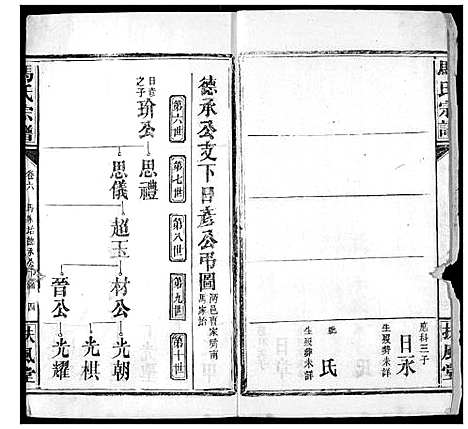 馬氏宗譜
扶風堂
應科三子
日永
生歿葬未詳
配
氏
生歿葬未詳
德承公支下昌彥公弔圖
馬家坮
第六世
第七世
第八世
第九世
第十世
之子
瑜公
思禮
思儀
超玉
材公
光朝
光棋
晉公
光耀
馬氏宗譜
卷六
四
扶風堂